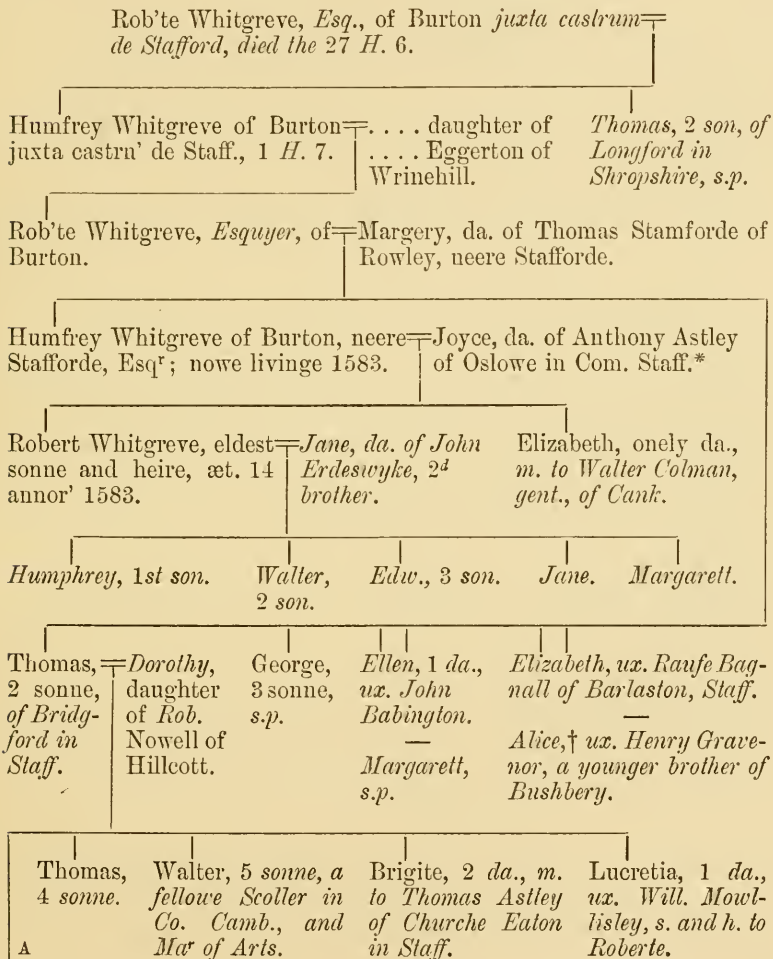 Rob'te Whitgreve, Esq., of Burton juxta castrum
de Stafford, died the 27 H. 6.
Humfrey Whitgreve of Burton
juxta castru' de Staff., 1 H. 7.
. . . . daughter of
. . . . Eggerton of
Wrinehill.
Thomas, 2 son, of
Longford in
Shropshire, s.p.
Rob'te Whitgreve, Esquyer, of
Burton.
Margery, da. of Thomas Stamforde of
Rowley, neere Stafforde.
Humfrey Whitgreve of Burton, neere
Stafforde, Esqr; nowe livinge 1583.
Joyce, da. of Anthony Astley
of Oslowe in Com. Staff.*
Robert Whitgreve, eldest
sonne and heire, æt. 14
annor' 1583.
Jane, da. of John
Erdeswyke, 2d
brother.
Elizabeth, onely da.,
m. to Walter Colman,
gent., of Cank.
Humphrey, 1st son.
Walter,
2 son.
Edw., 3 son.
Jane.
Margarett.
Thomas,
2 sonne,
of Bridg-
ford in
Staff.
Dorothy,
daughter
of Rob.
Nowell of
Hillcott.
George,
3 sonne,
s.p.
Ellen, 1 da.,
ux. John
Babington.
—
Margarett,
s.p.
Elizabeth, ux. Raufe Bag-
nall of Barlaston, Staff.
—
Alice,† ux. Henry Grave-
nor, a younger brother of
Bushbery.
A
Thomas,
4 sonne.
Walter, 5 sonne, a
fellowe Scoller in
Co. Camb., and
Mar of Arts.
Brigite, 2 da., m.
to Thomas Astley
of Churche Eaton
in Staff.
Lucretia, 1 da.,
ux. Will. Mowl-
lisley, s. and h. to
Roberte.